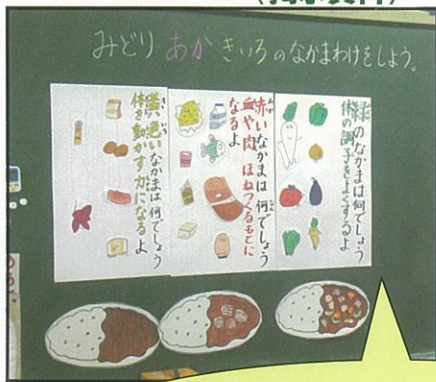 みどり あか きいろ のなかまわけをしよう。
緑のなかまは何でしょう
体の調子をよくするよ
赤いなかまは何でしょう
血や肉 ほねつくるもとに
なるよ
黄色いなかまは何でしょう
体を動かす力になるよ